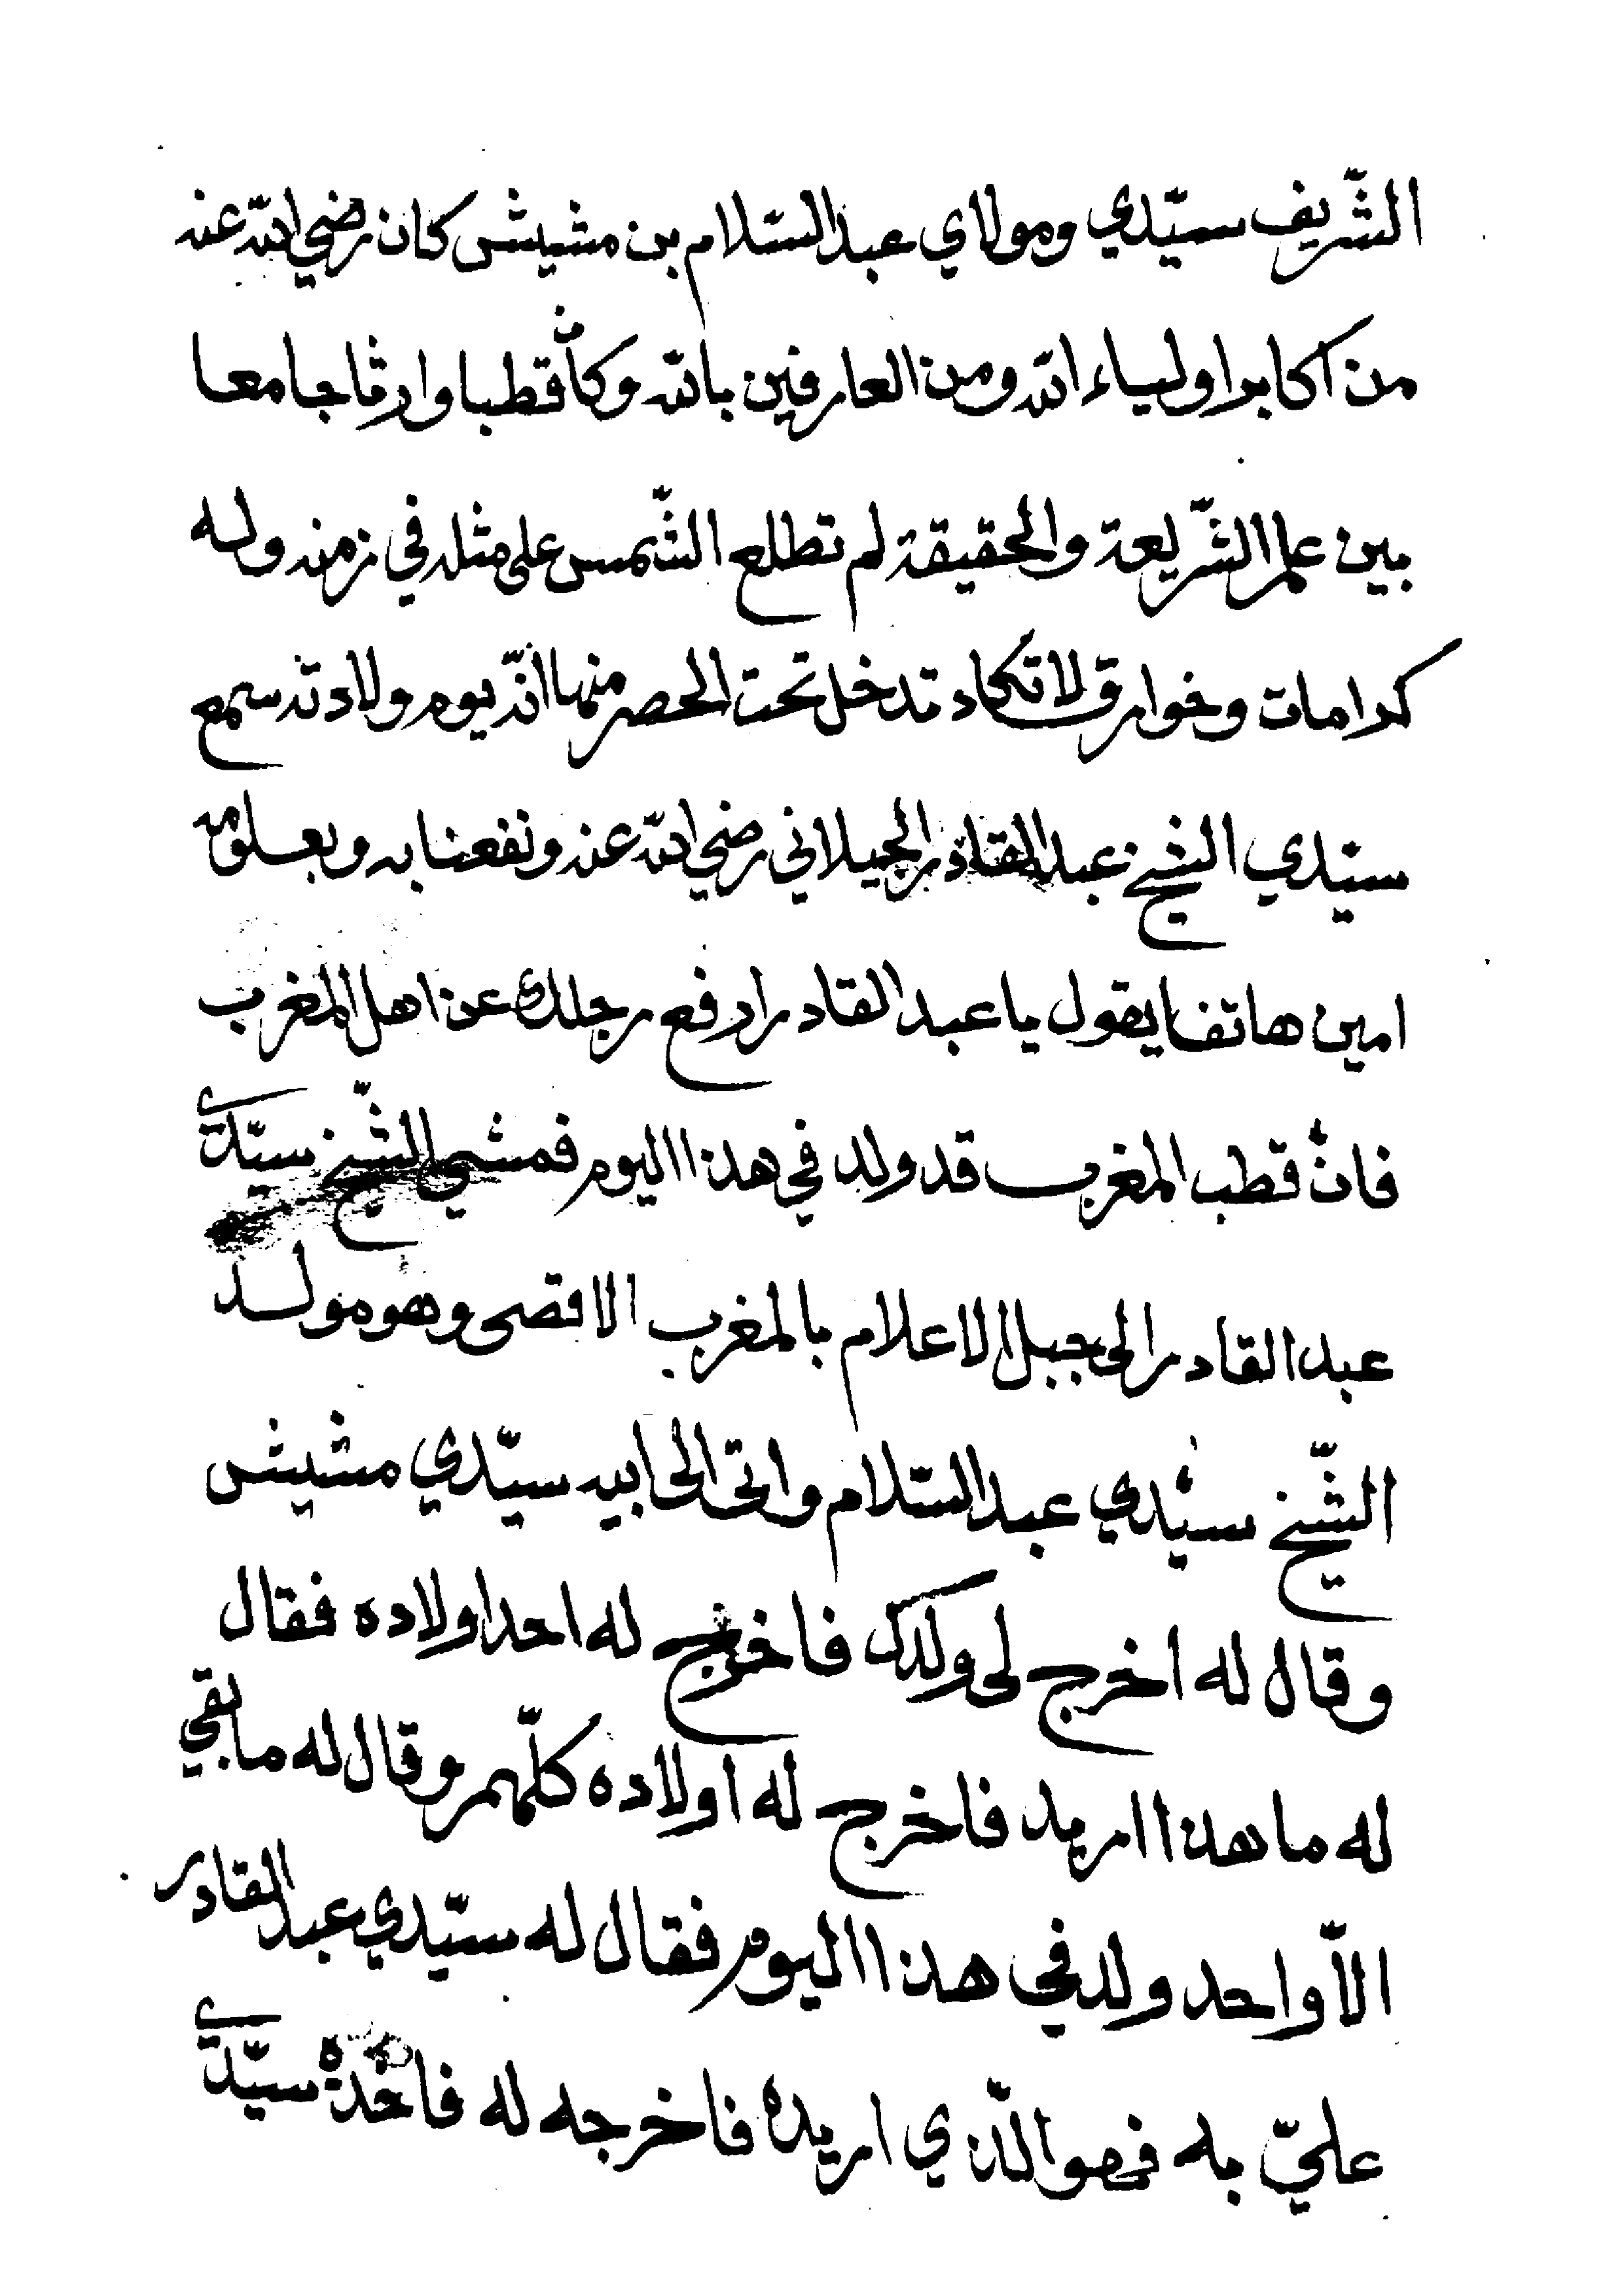 الشّريف سيّدي ومولاي عبد السّلام بن مشيش كان رضي الله عنه
من اكابر اولياء الله ومن العارفين بالله وكان قطبا وارثا جامعا
بين علم الشّريعة والحقيقة لم تطلع الشّمس على مثله في زمنه وله
كرامات وخوارق لا تكاد تدخل تحت الحصر منها انّه يوم ولادته سمع
سيّدي الشيخ عبد القادر الجيلاني رضي الله عنه ونفعنا به وبعلومه
امين هاتفا يقول يا عبد القادر ارفع رجلك عن اهل المغرب
فانّ قطب المغرب قد ولد في هذا اليوم فمشي الشّيخ سيّدي
عبد القادر الى جبل الاعلام بالمغرب الاقصى وهو مولد
الشّيخ سيّدي عبد السّلام واتى الى ابيه سيّدي مشيش
وقال له اخرج لي ولدك فاخرج له احد اولاده فقال
له ما هذا اريد فاخرج له اولاده كلّهم وقال له ما بقي
الاّ واحد ولد في هذا اليوم فقال له سيّدي عبد القادر
عليّ به فهو الّذي اريده فاخرجه له فاخذه سيّدي